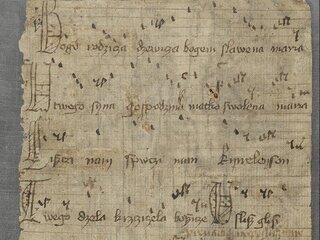 Bogu rodzicza dzewicza bogem slawena maria
U twego syna gospodzina matko swolena maria
Siszczi nam spwczi nam kirieleyson
Twego dzela krzcziczela bozicze Uslisz glosi